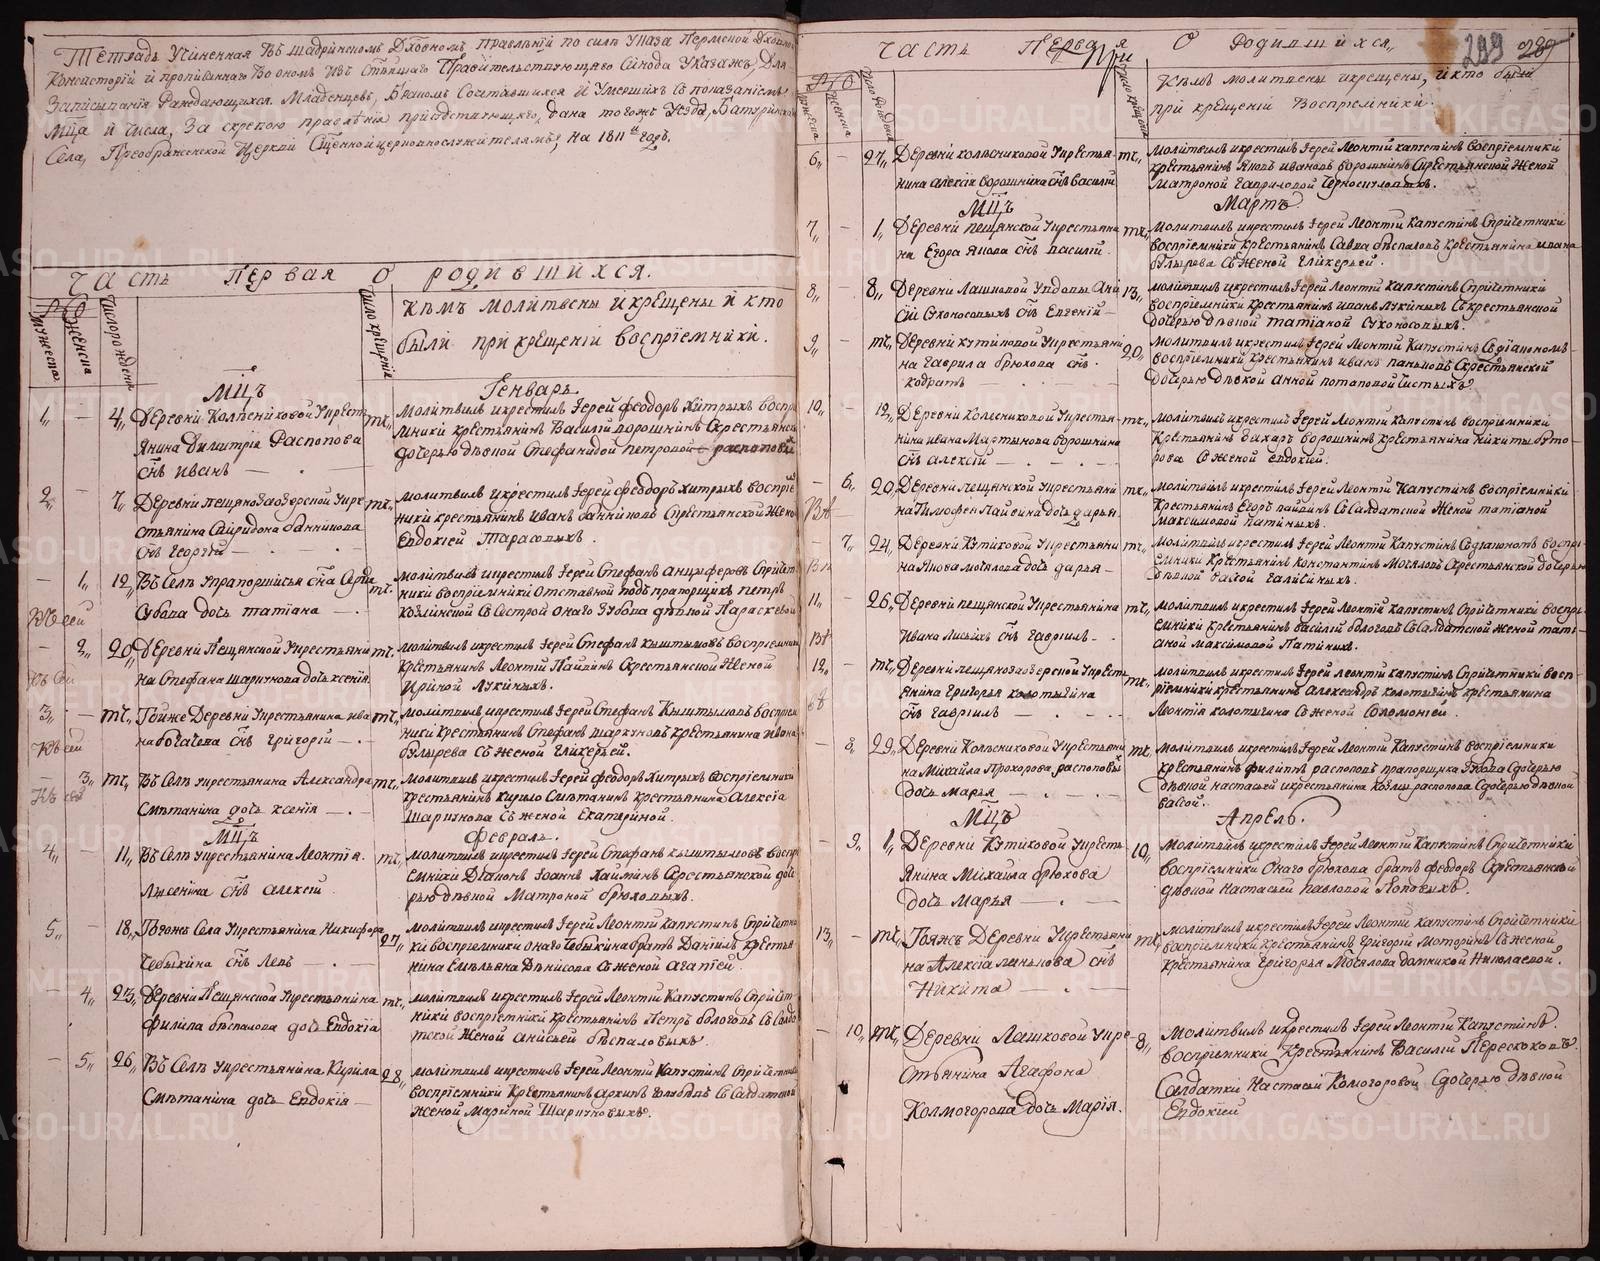 Тетрадь Учиненная Въ шадринскомъ Духовномъ правленіи по силѣ Указа Пермской Духовной
Консисторіи и прописаннаго Во ономъ изъ Святѣйшаго Правительствующаго Синода Указахъ, Для
Записыванія Раждающихся Младенцевъ, Бракомъ Сочетавшихся и Умершихъ Съ показаніемъ
Мца и Числа, За скрепою правленія присудствующаго, дана тогожъ Уезда, Батуринскаго
Села, Преображенской Церкви Сщенноцерковнослужителямъ, на 1811й годъ.
Часть Первая О родившихся.
Мужеска
Женска
Число рожденія
Число крещенія
Кѣмъ молитвены и крещены и кто
были при крещеніи воспріемники.
Мцъ Генварь
1,, — 4,, Деревни Колѣсниковой Укрестьянина Димитрія Распопова снъ Иванъ
тг,, Молитвилъ икрестилъ Іерей Феодоръ Хитрыхъ воспріемники крестьянинъ Василій ворошнинъ Скрестьянской
дочерью дѣвкой Стефанидой петровой распоповой
2,, — 7,, Деревни пещанозаозерской Укрестьянина Спиридона банникова
снъ Георгій
тг,, молитвилъ икрестилъ Іерей Феодоръ хитрыхъ воспріемники крестьянинъ Иванъ банниковъ Скрестьянской Женой
Евдокіей Тарасовыхъ.
— 1,, 12,, Въ Селѣ Упрапорщика
Зубова дочь татіана
тг,, молитвилъ икрестилъ Іерей Стефанъ анциферовъ Спричетники воспріемники Отставной подпрапорщикъ петръ
Козлинской Съ Сестрой онаго Зубова дѣвкой Параскевой
— 2,, 20,, Деревни Пещанской Укрестьянина Стефана шарчкова дочь ксенія
тг,, молитвилъ икрестилъ Іерей Стефанъ Кыштымовъ воспріемники
Крестьянинъ Леонтій Пайвинъ Скрестьянской Женой
Ириной Лукиныхъ.
3,, — тг,, Тойже Деревни Укрестьянина Ивана богачева снъ Григорій
тг,, молитвилъ икрестилъ Іерей Стефанъ Кыштымовъ воспріемники крестьянинъ Стефанъ шарчковъ крестьянина ивана
булырева Съ женой гликерьей.
— 3,, тг,, Въ Селѣ укрестьянина Александра
Смѣтанина дочь ксенія
тг,, молитвилъ икрестилъ Іерей Феодоръ Хитрыхъ воспріемники
крестьянинъ курило Смѣтанинъ крестьянина Алексія
шаричкова Съ женой Екатериной.
Мцъ Февраль.
4,, — 11,, Въ Селѣ укрестьянина Леонтія
снъ алексій
тг,, молитвилъ икрестилъ Іерей Стефанъ кыштымовъ воспріемники Діяконъ Іоаннъ Хайминъ Скрестьянской дочерью дѣвкой Матроной брюховыхъ.
5,, — 18,, Тогожъ Села Укрестьянина Никифора
Чебыкина снъ Левъ
27,, молитвилъ икрестилъ Іерей Леонтій Капустинъ Спричетники воспріемники онаго чебыкина братъ Даніилъ крестьянина Емѣльяна Денисова Съ женой агатіей.
— 4,, 25,, Деревни Пещанской Укрестьянина
Филипа бѣспалова дочь Евдокія
тг,, молитвилъ икрестилъ Іерей Леонтій Капустинъ Спричетники воспріемники крестьянинъ Петръ бологовъ Съ Солдатской Женой анисьей бѣспаловыхъ.
— 5,, 26,, Въ Селѣ укрестьянина Кирила
Смѣтанина дочь Евдокія
28,, молитвилъ икрестилъ Іерей Леонтій Капустинъ Спричетники
воспріемники Крестьянинъ архипъ голыбевъ Съ Салдатской
женой Мариной Шаричковыхъ.
Часть Первая О родившихся,,
299
Мужеска
Женска
Число рожденія
Число крещенія
Кѣмъ молитвены икрещены, и кто были
при крещеніи Воспріемники.
6,, — 27,, Деревни колѣсниковой Укрестьянина алексія ворошнина снъ василій
тг,, молитвилъ икрестилъ Іерей Леонтій капустинъ воспріемники
крестьянинъ Яковъ ивановъ ворошнинъ Скрестьянской Женой
Матроной гавриловой Черноскуловыхъ.
Мцъ Мартъ.
7,, — 1,, Деревни Пещанской Укрестьянина Егора Якова снъ василій
тг,, молитвилъ икрестилъ Іерей Леонтій Капустинъ Спричетники
воспріемники крестьянинъ Савва бѣспаловъ крестьянина ивана
булырева Съ женой гликерьей.
8,, — 8,, Деревни Лашковой Увдовы Анисіи Сухоносовыхъ снъ Евгеній
13,, молитвилъ икрестилъ Іерей Леонтій капустинъ Спричетники
воспріемники крестьянинъ иванъ Лукиныхъ Скрестьянской
дочерью дѣвкой татіаной Сухоносовыхъ.
9,, — тг,, Деревни кутиковой Укрестьянина Гаврила брюхова снъ
кодратъ
20,, Молитвилъ икрестилъ Іерей Леонтій Капустинъ Содіакономъ
воспріемники крестьянинъ иванъ паньковъ Скрестьянской
дочерью дѣвкой анной потаповой Чистыхъ
10,, — 12,, Деревни Колесниковой Укрестьянина ивана Мартынова ворошнина
снъ алексій
тг,, молитвилъ икрестилъ Іерей Леонтій Капустинъ воспріемники
Крестьянинъ захаръ ворошнинъ крестьянина никиты буторова Съ женой евдокіей.
— 6,, 20,, Деревни пещанской Укрестьянина Тимофея Пайвина дочь дарья
тг,, молитвилъ икрестилъ Іерей Леонтій Капустинъ воспріемники
Крестьянинъ Егоръ пайвинъ Съ Салдатской Женой татіаной
максимовой патиныхъ.
— 7,, 24,, Деревни Кутиковой Укрестьянина Якова мохялова дочь дарья
тг,, Молитвилъ икрестилъ Іерей Леонтій Капустинъ Содіакономъ воспріемники Крестьянинъ Константинъ Мохяловъ Скрестьянской дочерью
дѣвкой васой галициныхъ.
11,, — 26,, Деревни пещанской Укрестьянина
Ивана лисьихъ снъ гавріилъ
тг,, молитвилъ икрестилъ Іерей Леонтій Капустинъ Спричетники воспріемники крестьянинъ василій бологовъ Съ Салдатской женой татіаной максимовой Патиныхъ.
12,, — тг,, Деревни пещанозаозерской Укрестьянина григорья колотыгина
снъ гавріилъ
тг,, молитвилъ икрестилъ Іерей леонтій капустинъ Спричетники воспріемники крестьянинъ Александръ колотыгинъ крестьянина
Леонтія колотыгина Съ женой Соломоніей.
— 8,, 29,, Деревни Колѣсниковой Укрестьянина Михайла Прохорова распоповыхъ
дочь марья
тг,, молитвилъ икрестилъ Іерей Леонтій Капустинъ воспріемники
крестьянинъ филиппъ распоповъ
дѣвкой настасьей
васой.
Мцъ Апрель.
— 9,, 1,, Деревни Кутиковой Укрестьянина Михайла брюхова
дочь марья
10,, молитвилъ икрестилъ Іерей Леонтій Капустинъ Спричетники
воспріемники Онаго брюхова братъ феодоръ Скрестьянской
дѣвкой настасьей павловой Поповыхъ.
13,, — тг,, Тояжъ Деревни Укрестьянина Алексія панькова снъ
Никита
тг,, молитвилъ икрестилъ Іерей Леонтій капустинъ Спричетники
воспріемники крестьянинъ григорій Моторинъ Съ женой
крестьянина григорья Мохялова домникой Николаевой.
— 10,, тг,, Деревни Лашковой Укрестьянина Агафона
Колмогорова дочь Марія.
8,, Молитвилъ икрестилъ Іерей Леонтій Капустинъ.
воспріемники Крестьянинъ Василій Перескоковъ
Салдатки Настасьи Колмогоровой Сдочерью дѣвкой
Евдокіей
METRIKI.GASO-URAL.RU